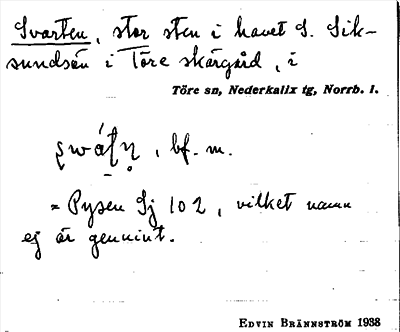 Svarten, stor sten i havet S. Sik-
sundsön i Töre skärgård, i
Töre sn, Nederkalix tg, Norrb. l.
, bf. m.
= Pysen Sj 102, vilket namn
ej är genuint.
EDVIN BRÄNNSTRÖM 1938